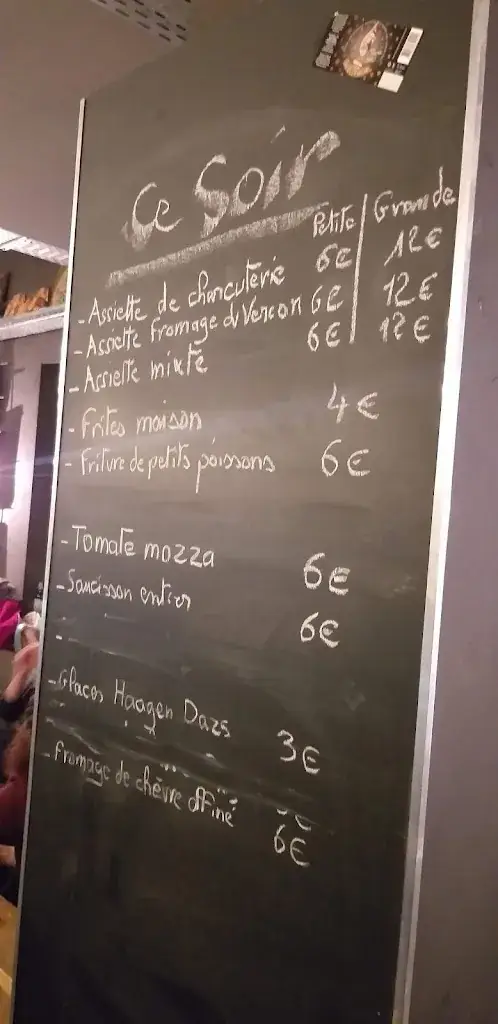 Ce Soir
Petite | Grande
- Assiette de charcuterie 6€ 12€
- Assiette fromage du Vercon 6€ 12€
- Assiette mixte 6€ 12€
- Frites maison 4€
- Friture de petits poissons 6€
- Tomate mozza 6€
- Saucisson entier 6€
-
- Glaces Haagen Dazs 3€
- Fromage de chèvre affiné 6€